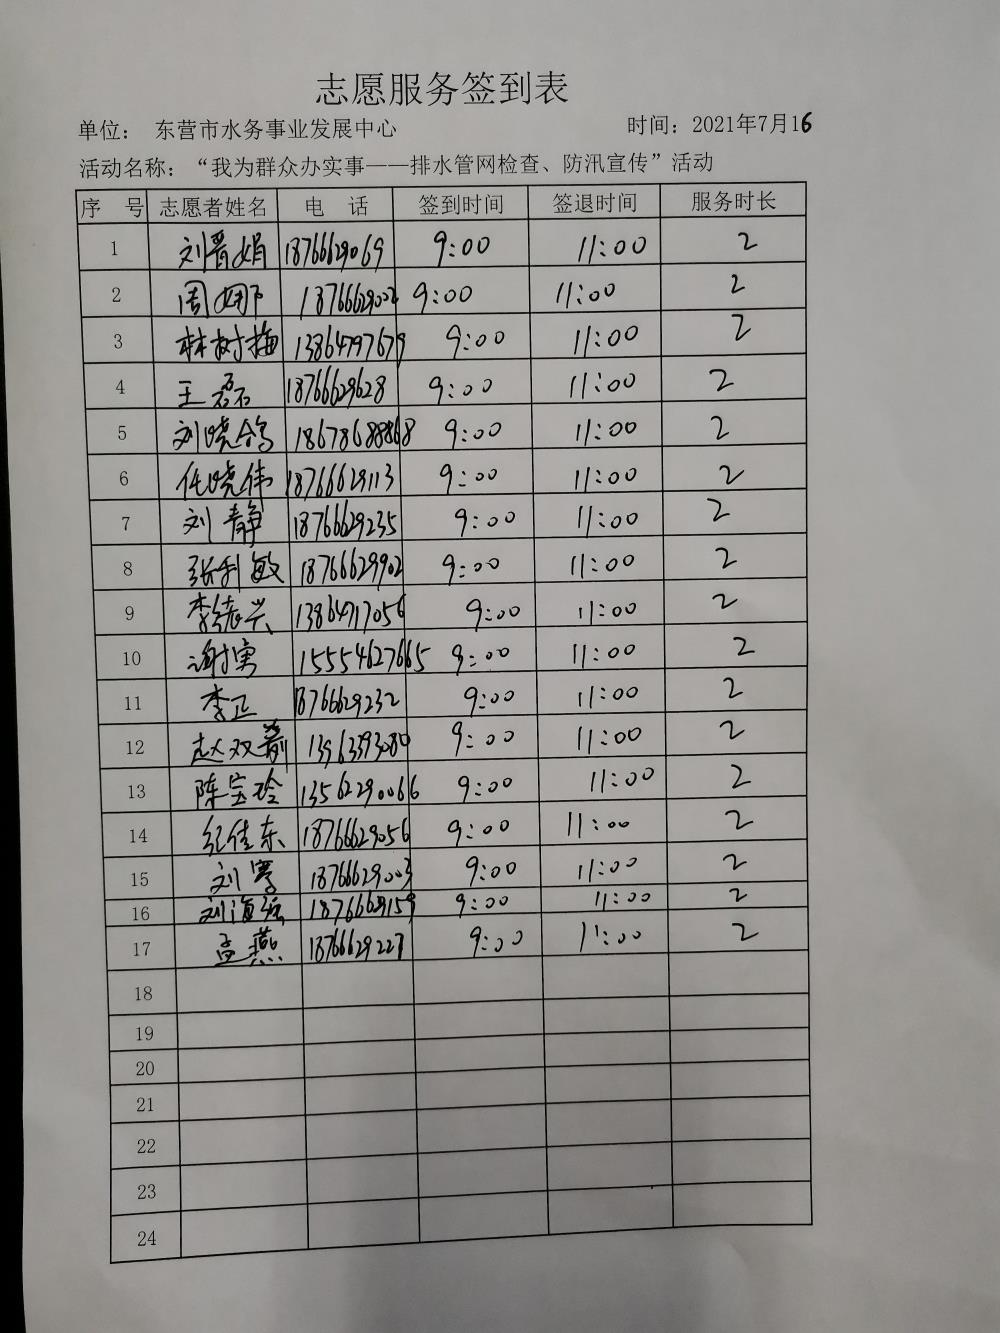 志愿服务签到表
单位： 东营市水务事业发展中心 时间：2021年7月16
活动名称：“我为群众办实事——排水管网检查、防汛宣传”活动
序 号 志愿者姓名 电 话 签到时间 签退时间 服务时长
1 刘晋娟 18766629069 9:00 11:00 2
2 周娜 18766629002 9:00 11:00 2
3 林树梅 13864797679 9:00 11:00 2
4 王磊 18766629628 9:00 11:00 2
5 刘晓鸽 18678688868 9:00 11:00 2
6 任晓伟 18766629113 9:00 11:00 2
7 刘静 18766629235 9:00 11:00 2
8 张利敏 18766629902 9:00 11:00 2
9 李德兴 13864717056 9:00 11:00 2
10 谢勇 15554627665 9:00 11:00 2
11 李正 18766629232 9:00 11:00 2
12 赵双 13963393080 9:00 11:00 2
13 陈宝玲 13562290066 9:00 11:00 2
14 纪佳东 18766629056 9:00 11:00 2
15 刘 18766629003 9:00 11:00 2
16 刘海 18766629159 9:00 11:00 2
17 孟燕 18766629227 9:00 11:00 2
18
19
20
21
22
23
24